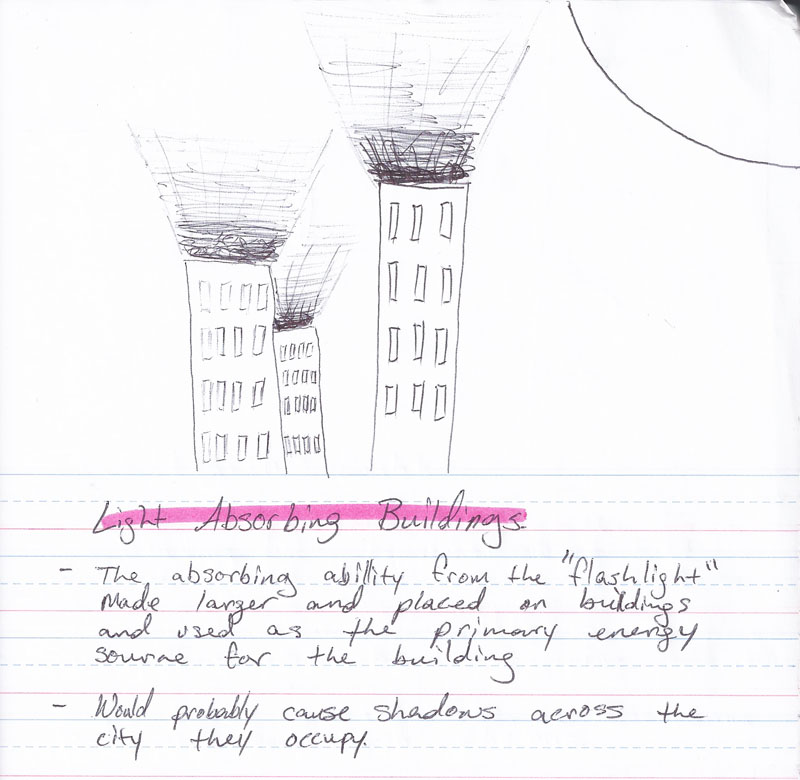 Light Absorbing Buildings
- The absorbing ability from the "flashlight"
Made larger and placed on buildings
and used as the primary energy
sourne for the building
- Would probably cause shadows across the
city they occupy.